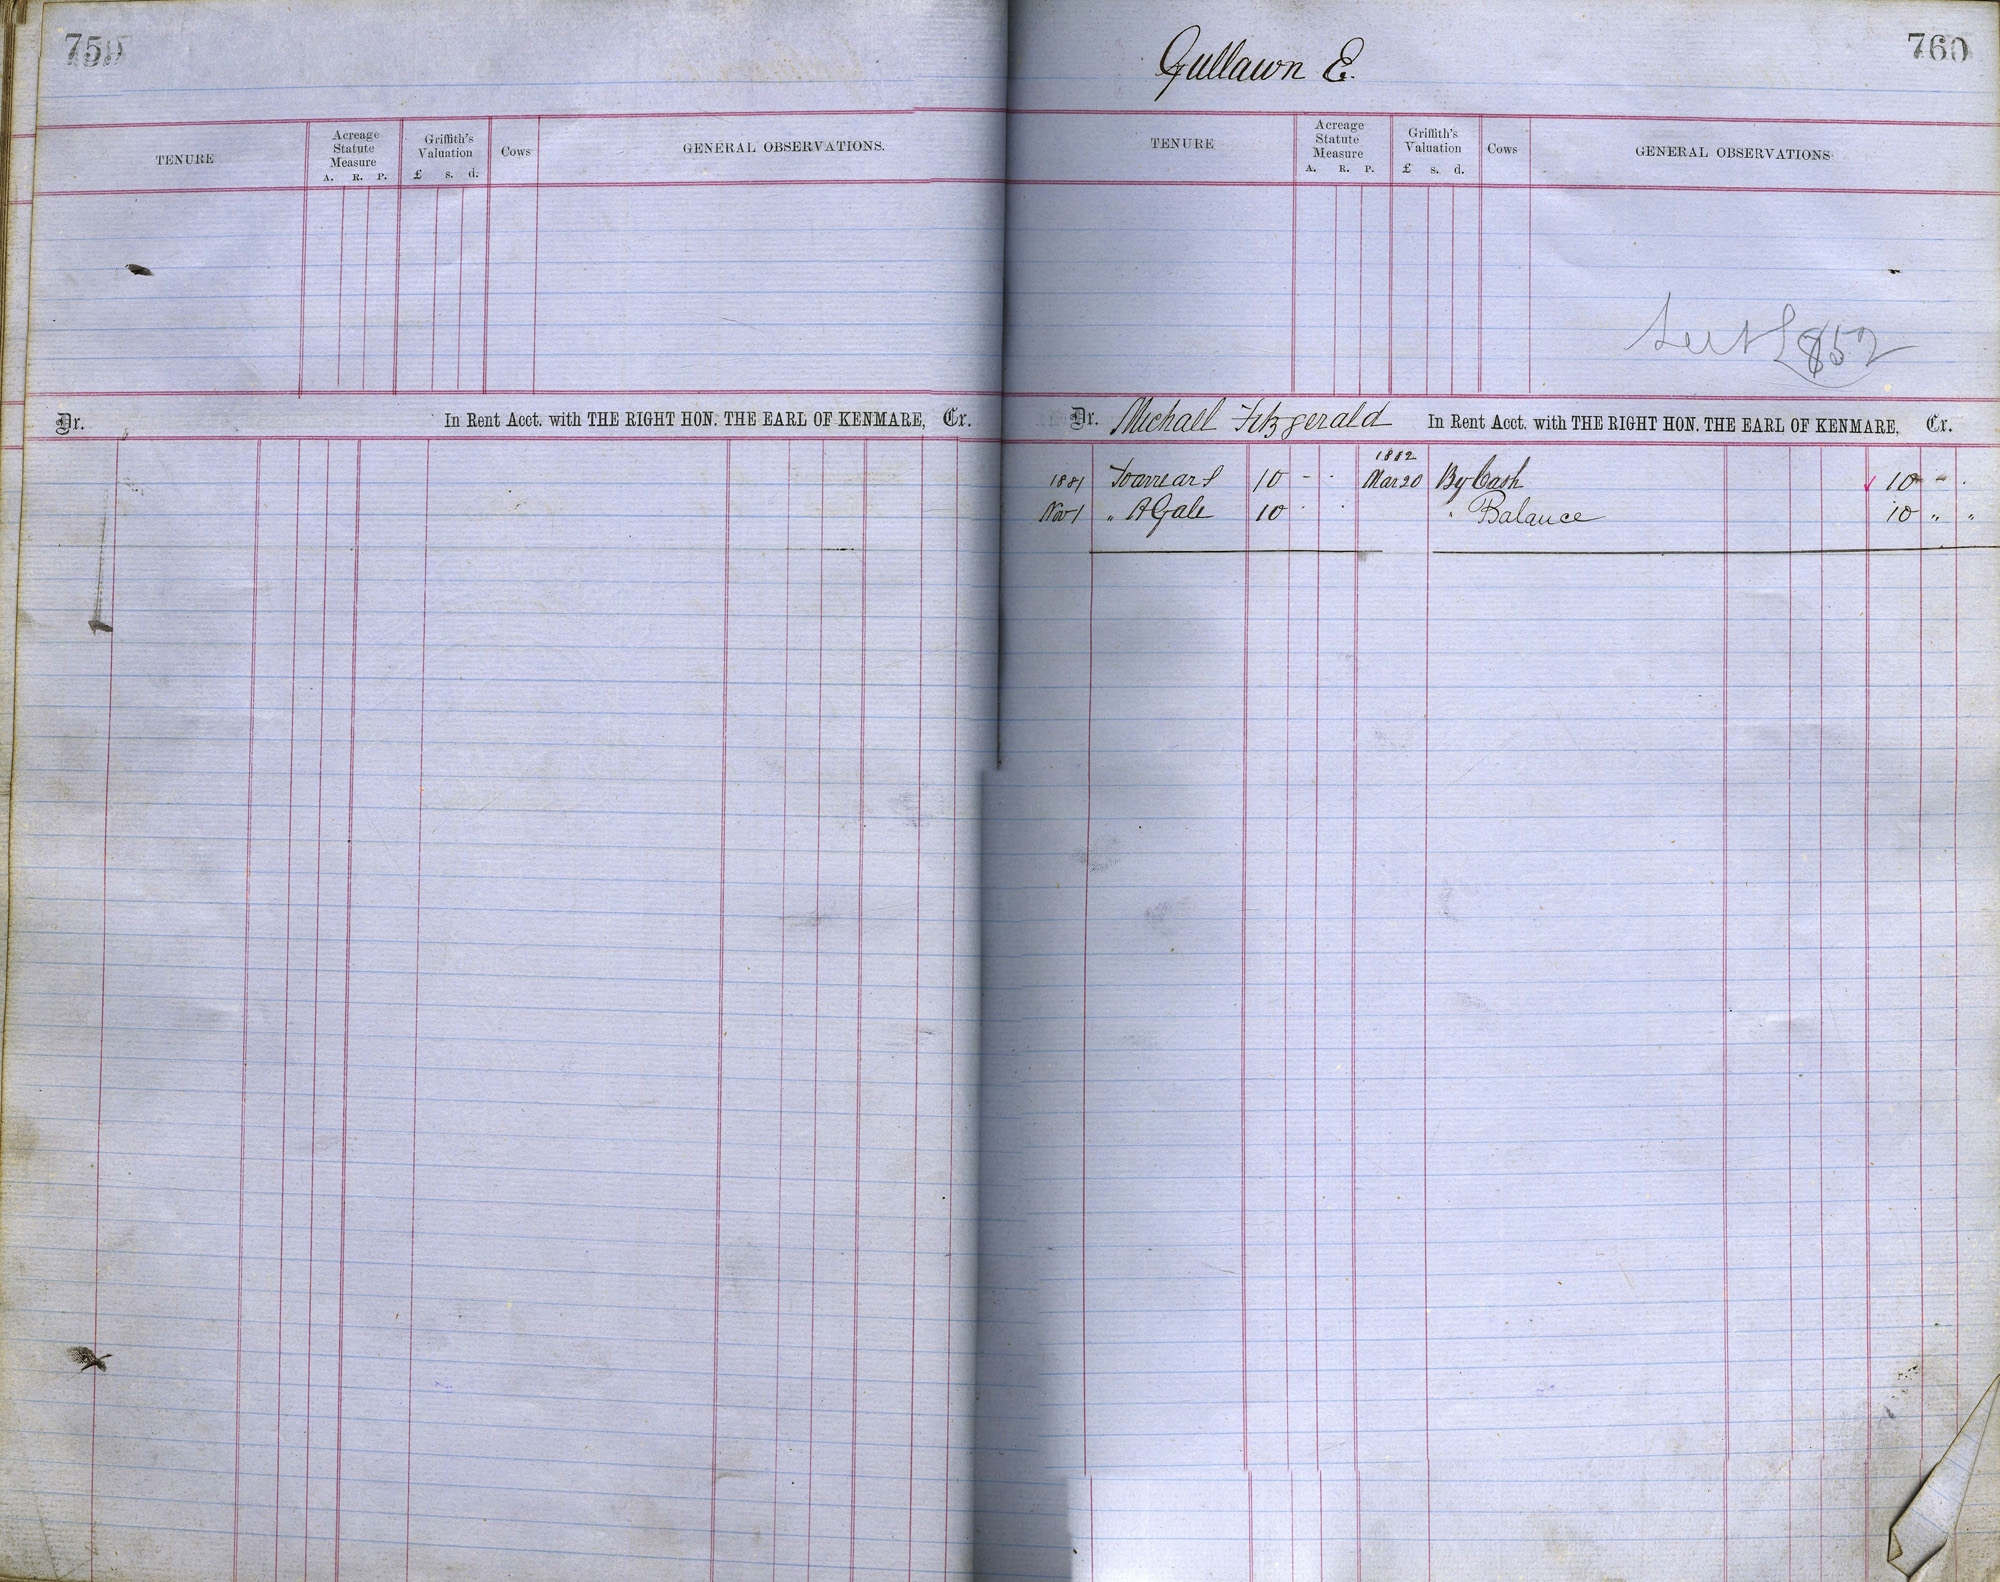 759
TENURE
Acreage
Statute
Measure
A. R. P.
Griffith's
Valuation
£ s. d.
Cows
GENERAL OBSERVATIONS.
Dr. In Rent Acct. with THE RIGHT HON. THE EARL OF KENMARE, Cr.
Gullawn E.
760
TENURE
Acreage
Statute
Measure
A. R. P.
Griffith's
Valuation
£ s. d.
Cows
GENERAL OBSERVATIONS
852
Dr. Michael Fitzgerald In Rent Acct. with THE RIGHT HON. THE EARL OF KENMARE, Cr.
1882
1881 To arrears 10 - . Mar 20 By Cash 10 - .
Nov 1 " A Gale 10 . . " Balance 10 " "